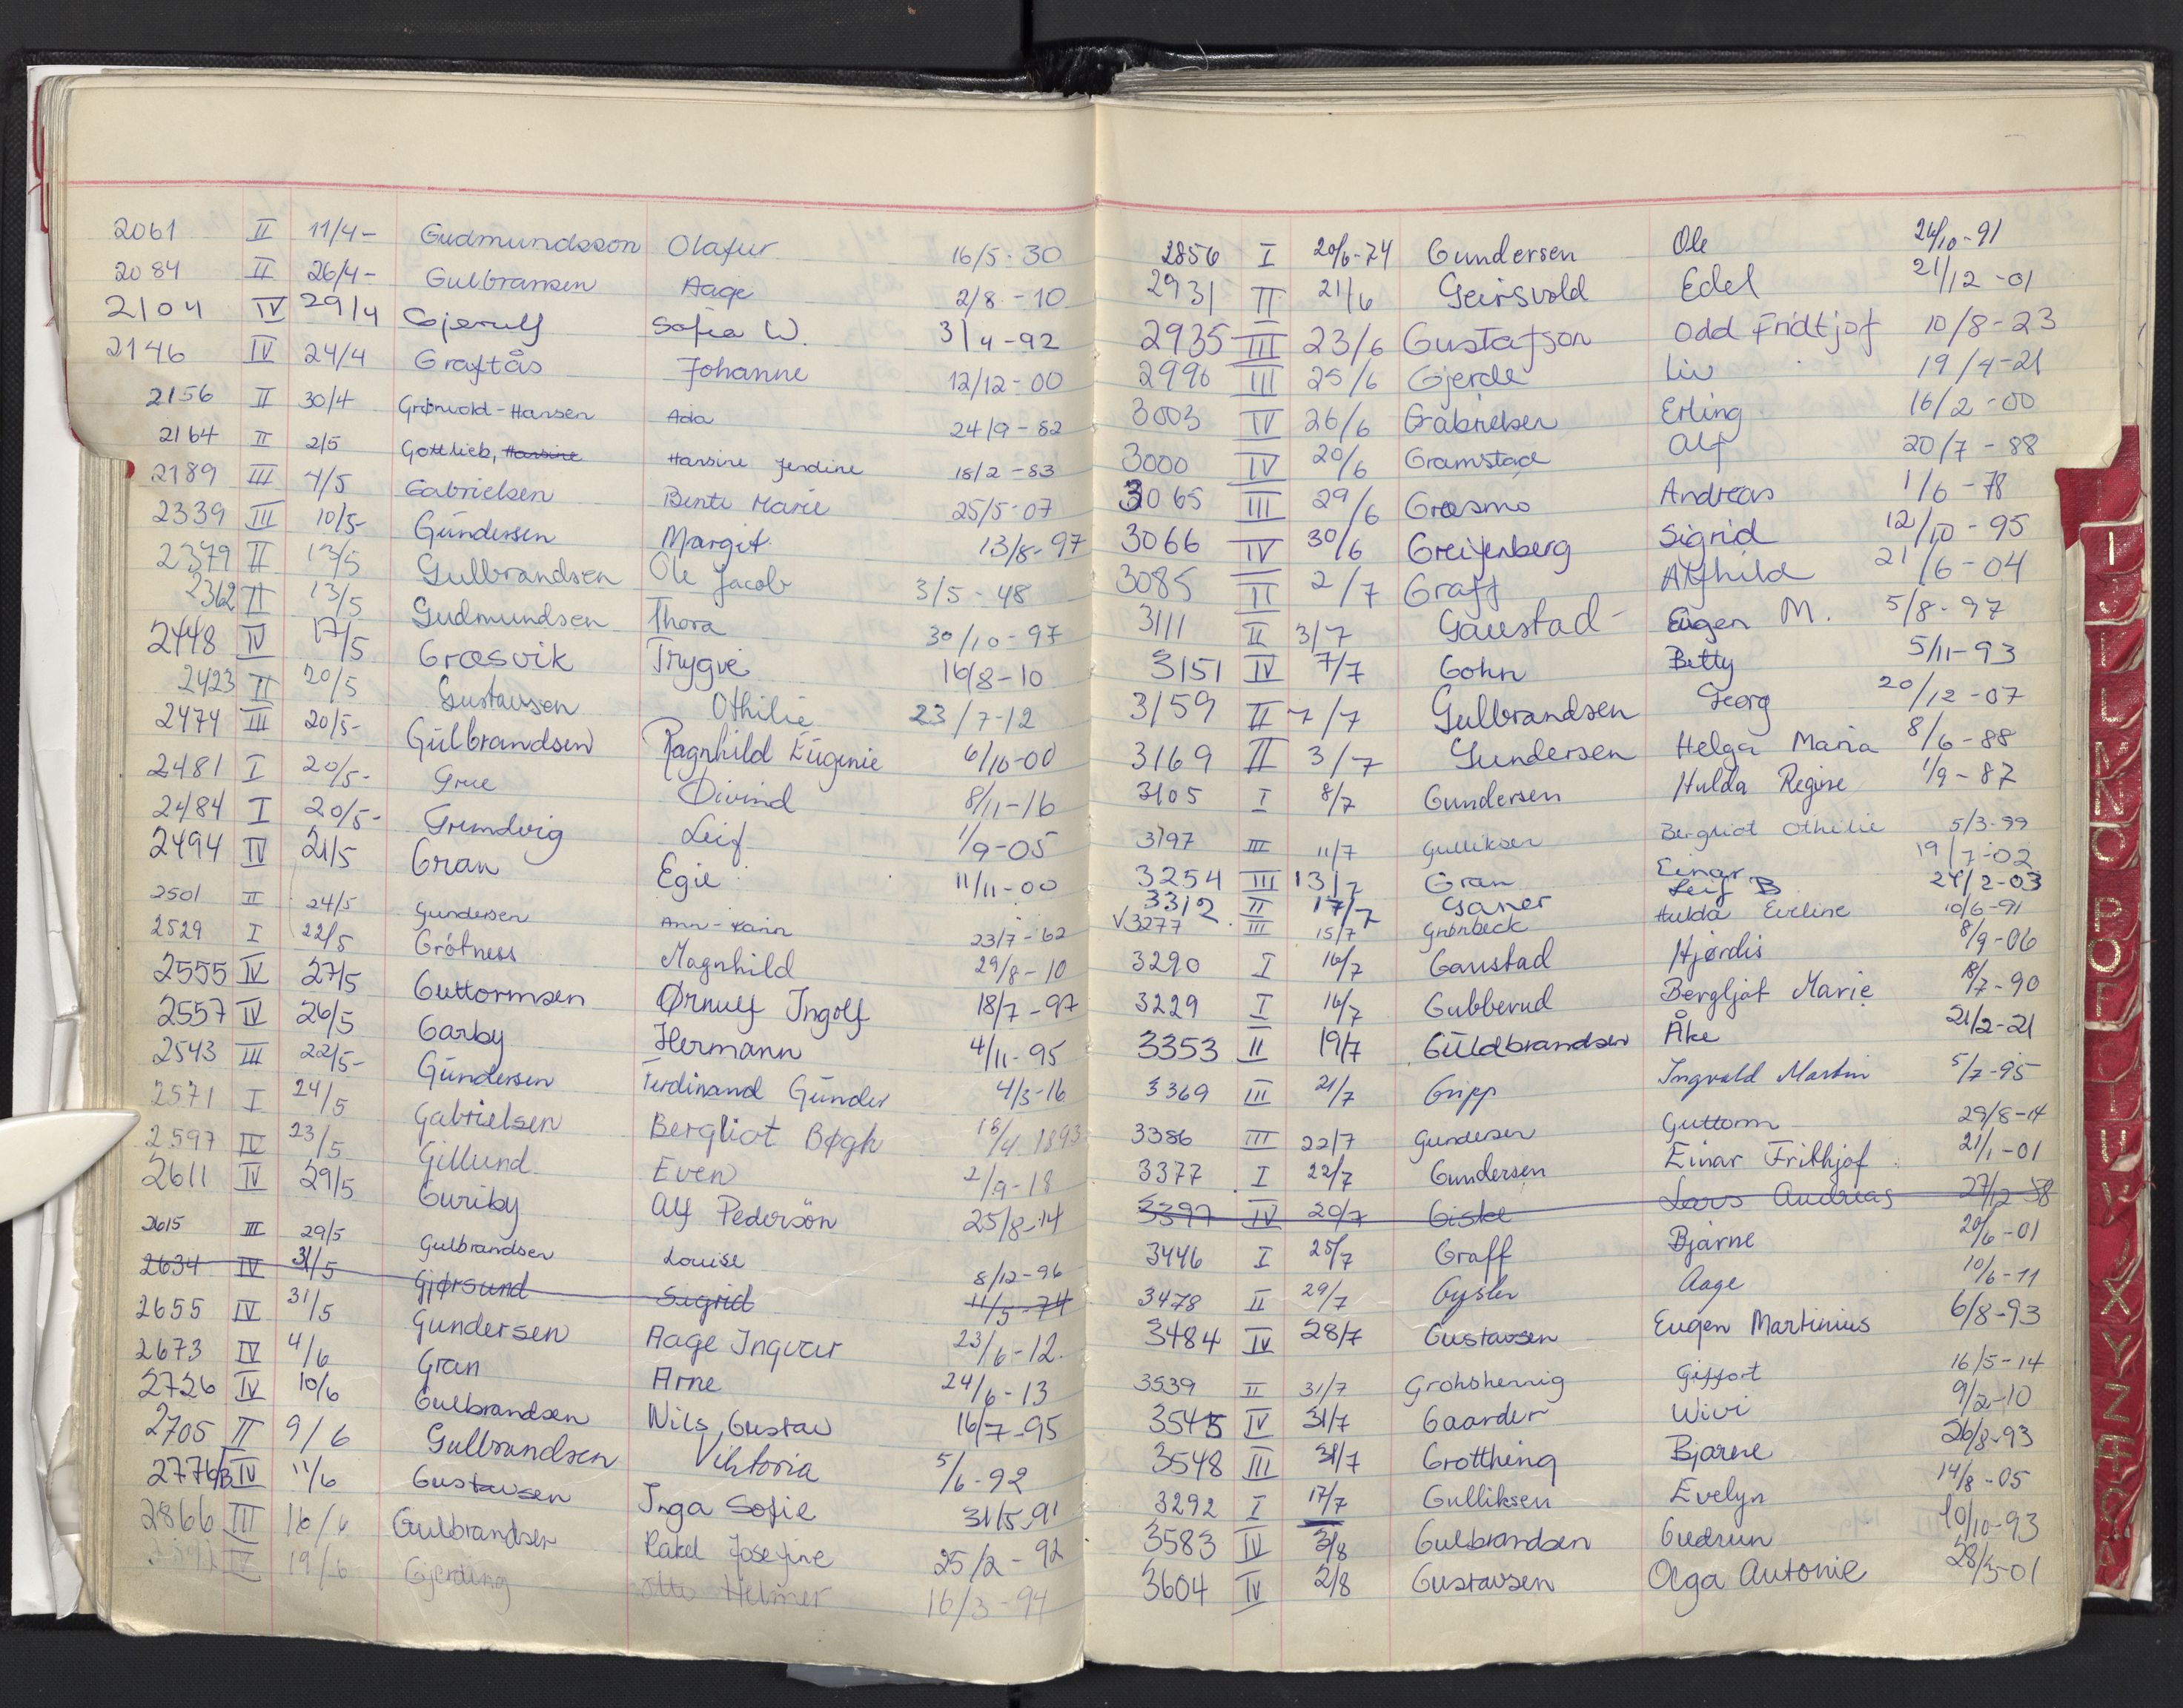 2061 II 11/4- Gudmundsson Olafur 16/5-30
2084 II 26/4- Gulbransen Aage 2/8-10
2104 IV 29/4 Gjerulf Sofia W. 3/4-92
2146 IV 24/4 Graftås Johanne 12/12-00
2156 II 30/4 Grønvold-Hansen Ada 24/9-82
2164 II 2/5 Gottlieb, Hansine Hansine Jendine 18/2-83
2189 III 4/5 Gabrielsen Bente Marie 25/5-07
2339 III 10/5- Gundersen Margit 13/8-97
2379 II 13/5 Gulbrandsen Ole Jacob 3/5-48
2362 II 13/5 Gudmundsen Thora 30/10-97
2448 IV 17/5 Græsvik Trygve 16/8-10
2423 II 20/5 Gustavsen Othilie 23/7-12
2474 III 20/5- Gulbrandsen Ragnhild Eugenie 6/10-00
2481 I 20/5- Grue Øivind 8/11-16
2484 I 20/5- Grundvig Leif 1/9-05
2494 IV 21/5 Gran Egil 11/11-00
2501 II 24/5 Gundersen Ann-Karin 23/7-62
2529 I 22/5 Grøtness Magnhild 29/8-10
2555 IV 27/5 Guttormsen Ørnulf Ingolf 18/7-97
2557 IV 26/5 Garby Hermann 4/11-95
2543 III 22/5- Gundersen Ferdinand Gunder 4/3-16
2571 I 24/5 Gabrielsen Bergliot Bøgh 16/4 1893
2597 IV 23/5 Gillund Even 2/9-18
2611 IV 29/5 Guriby Alf Pedersøn 25/8-14
2615 III 29/5 Gulbrandsen Louise 8/12-96
2634 IV 31/5 Gjørsund Sigrid 11/5-74
2655 IV 31/5 Gundersen Aage Ingvar 23/6-12.
2673 IV 4/6 Gran Arne 24/6-13
2726 IV 10/6 Gulbrandsen Nils Gustav 16/7-95
2705 II 9/6 Gulbrandsen Viktoria 5/6-92
2776/B IV 11/6 Gustavsen Inga Sofie 31/5-91
2866 III 16/6 Gulbrandsen Rakel Josefine 25/2-92
IV 19/6 Gjerding Otto Helmer 16/3-94
2856 I 20/6-74 Gundersen Ole 24/10-91
2931 II 21/6 Geirsvold Edel 21/12-01
2935 III 23/6 Gustafson Odd Fridtjof 10/8-23
2996 III 25/6 Gjerde Liv 19/4-21
3003 IV 26/6 Gabrielsen Erling 16/2-00
3000 IV 20/6 Gramstad Alf 20/7-88
3065 III 29/6 Græsmo Andreas 1/6-78
3066 IV 30/6 Greifenberg Sigrid 12/10-95
3085 II 2/7 Graff Alfhild 21/6-04
3111 II 3/7 Gaustad- Eugen M. 5/8-97
3151 IV 7/7 Gohn Betty 5/11-93
3159 II 7/7 Gulbrandsen Georg 20/12-07
3169 II 3/7 Gundersen Helga Maria 8/6-88
3105 I 8/7 Gundersen Hulda Regine 1/9-87
3197 III 11/7 Gulliksen Bergliot Othilie 5/3-99
3254 III 13/7 Gran Einar 19/7-02
3312 II 17/7 Ganer Leif B 24/2-03
V3277 III 15/7 Grønbeck Hulda Eveline 10/6-91
3290 I 16/7 Gaustad Hjørdis 8/9-06
3229 I 16/7 Gubberud Bergljot Marie 18/7-90
3353 II 19/7 Guldbrandsen Åke 21/2-21
3369 III 21/7 Gripp Ingvald Martin 5/7-95
3386 III 22/7 Gundersen Guttorm 29/8-14
3377 I 22/7 Gundersen Einar Frithjof 21/1-01
3397 IV 20/7 Giske Lars Andreas 27/12-58
3446 I 25/7 Graff Bjarne 20/6-01
3478 II 29/7 Gysler Aage 10/6-11
3484 IV 28/7 Gustavsen Eugen Martinius 6/8-93
3539 II 31/7 Grohshennig Giffort 16/5-14
3545 IV 31/7 Gaarder Wivi 9/2-10
3548 III 31/7 Grotthing Bjarne 26/8-93
3292 I 17/7 Gulliksen Evelyn 14/8-05
3583 IV 3/8 Gulbrandsen Gudrun 10/10-93
3604 IV 2/8 Gustavsen Olga Antonie 28/3-01